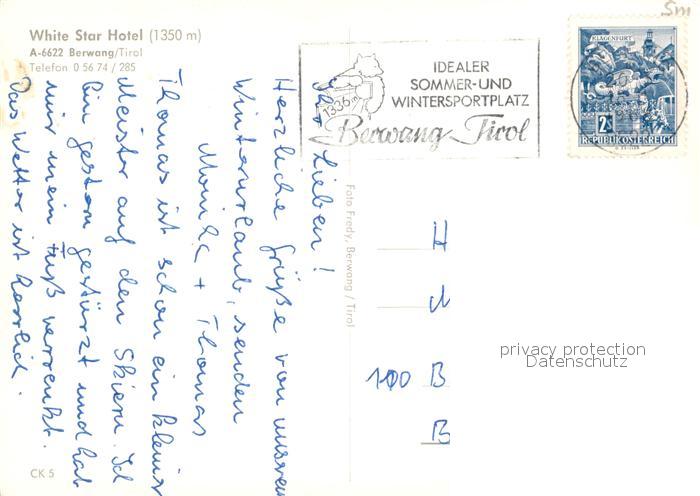 White Star Hotel (1350 m)
A-6622 Berwang/Tirol
Telefon 0 56 74 / 285
1336m
IDEALER
SOMMER-UND
WINTERSPORTPLATZ
Berwang Tirol
KLAGENFURT
2S
REPUBLIK ÖSTERREICH
Sm
Ihr Lieben!
Herzliche Grüße von unserem
Winterurlaub, senden
Monika + Thomas
Thomas ist schon ein kleiner
Meister auf den Skiern. Ich
bin gestern gestürzt und hab
mir mein Fuß verrenkt.
Das Wetter ist herrlich.
Foto Fredy, Berwang / Tirol
H
100 B
B
privacy protection
Datenschutz
CK 5